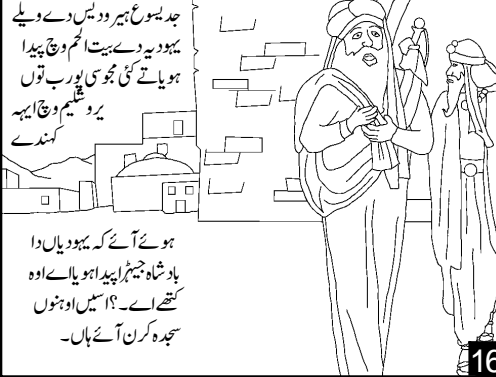 جد یسوع ہیرودیس دے ویلے
یہودیہ دے بیت الحم وچ پیدا
ہویا تے کئی مجوسی پورب توں
یروشلیم وچ ایہہ
کہندے
ہوئے آئے کہ یہودیاں دا
بادشاہ جیہڑا پیدا ہویا اے اوہ
کتھے اے۔؟ اسیں اوہنوں
سجدہ کرن آئے ہاں۔
16